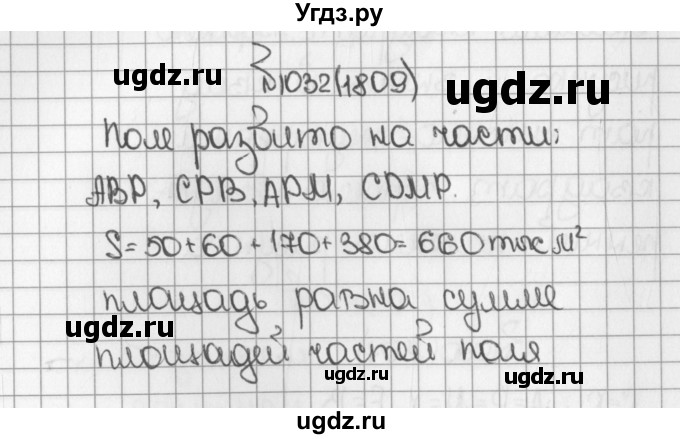 Угдз.ру
ugdz.ru
№1032(1809)
ugdz.ru
поле разбито на части:
АВР, СРВ, АРМ, CDMP.
S=50+60+170+380=660 тыс м²
площадь равна сумме
ugdz.ru
площадей частей поля
ugdz.ru
ugdz.ru
ugdz.ru